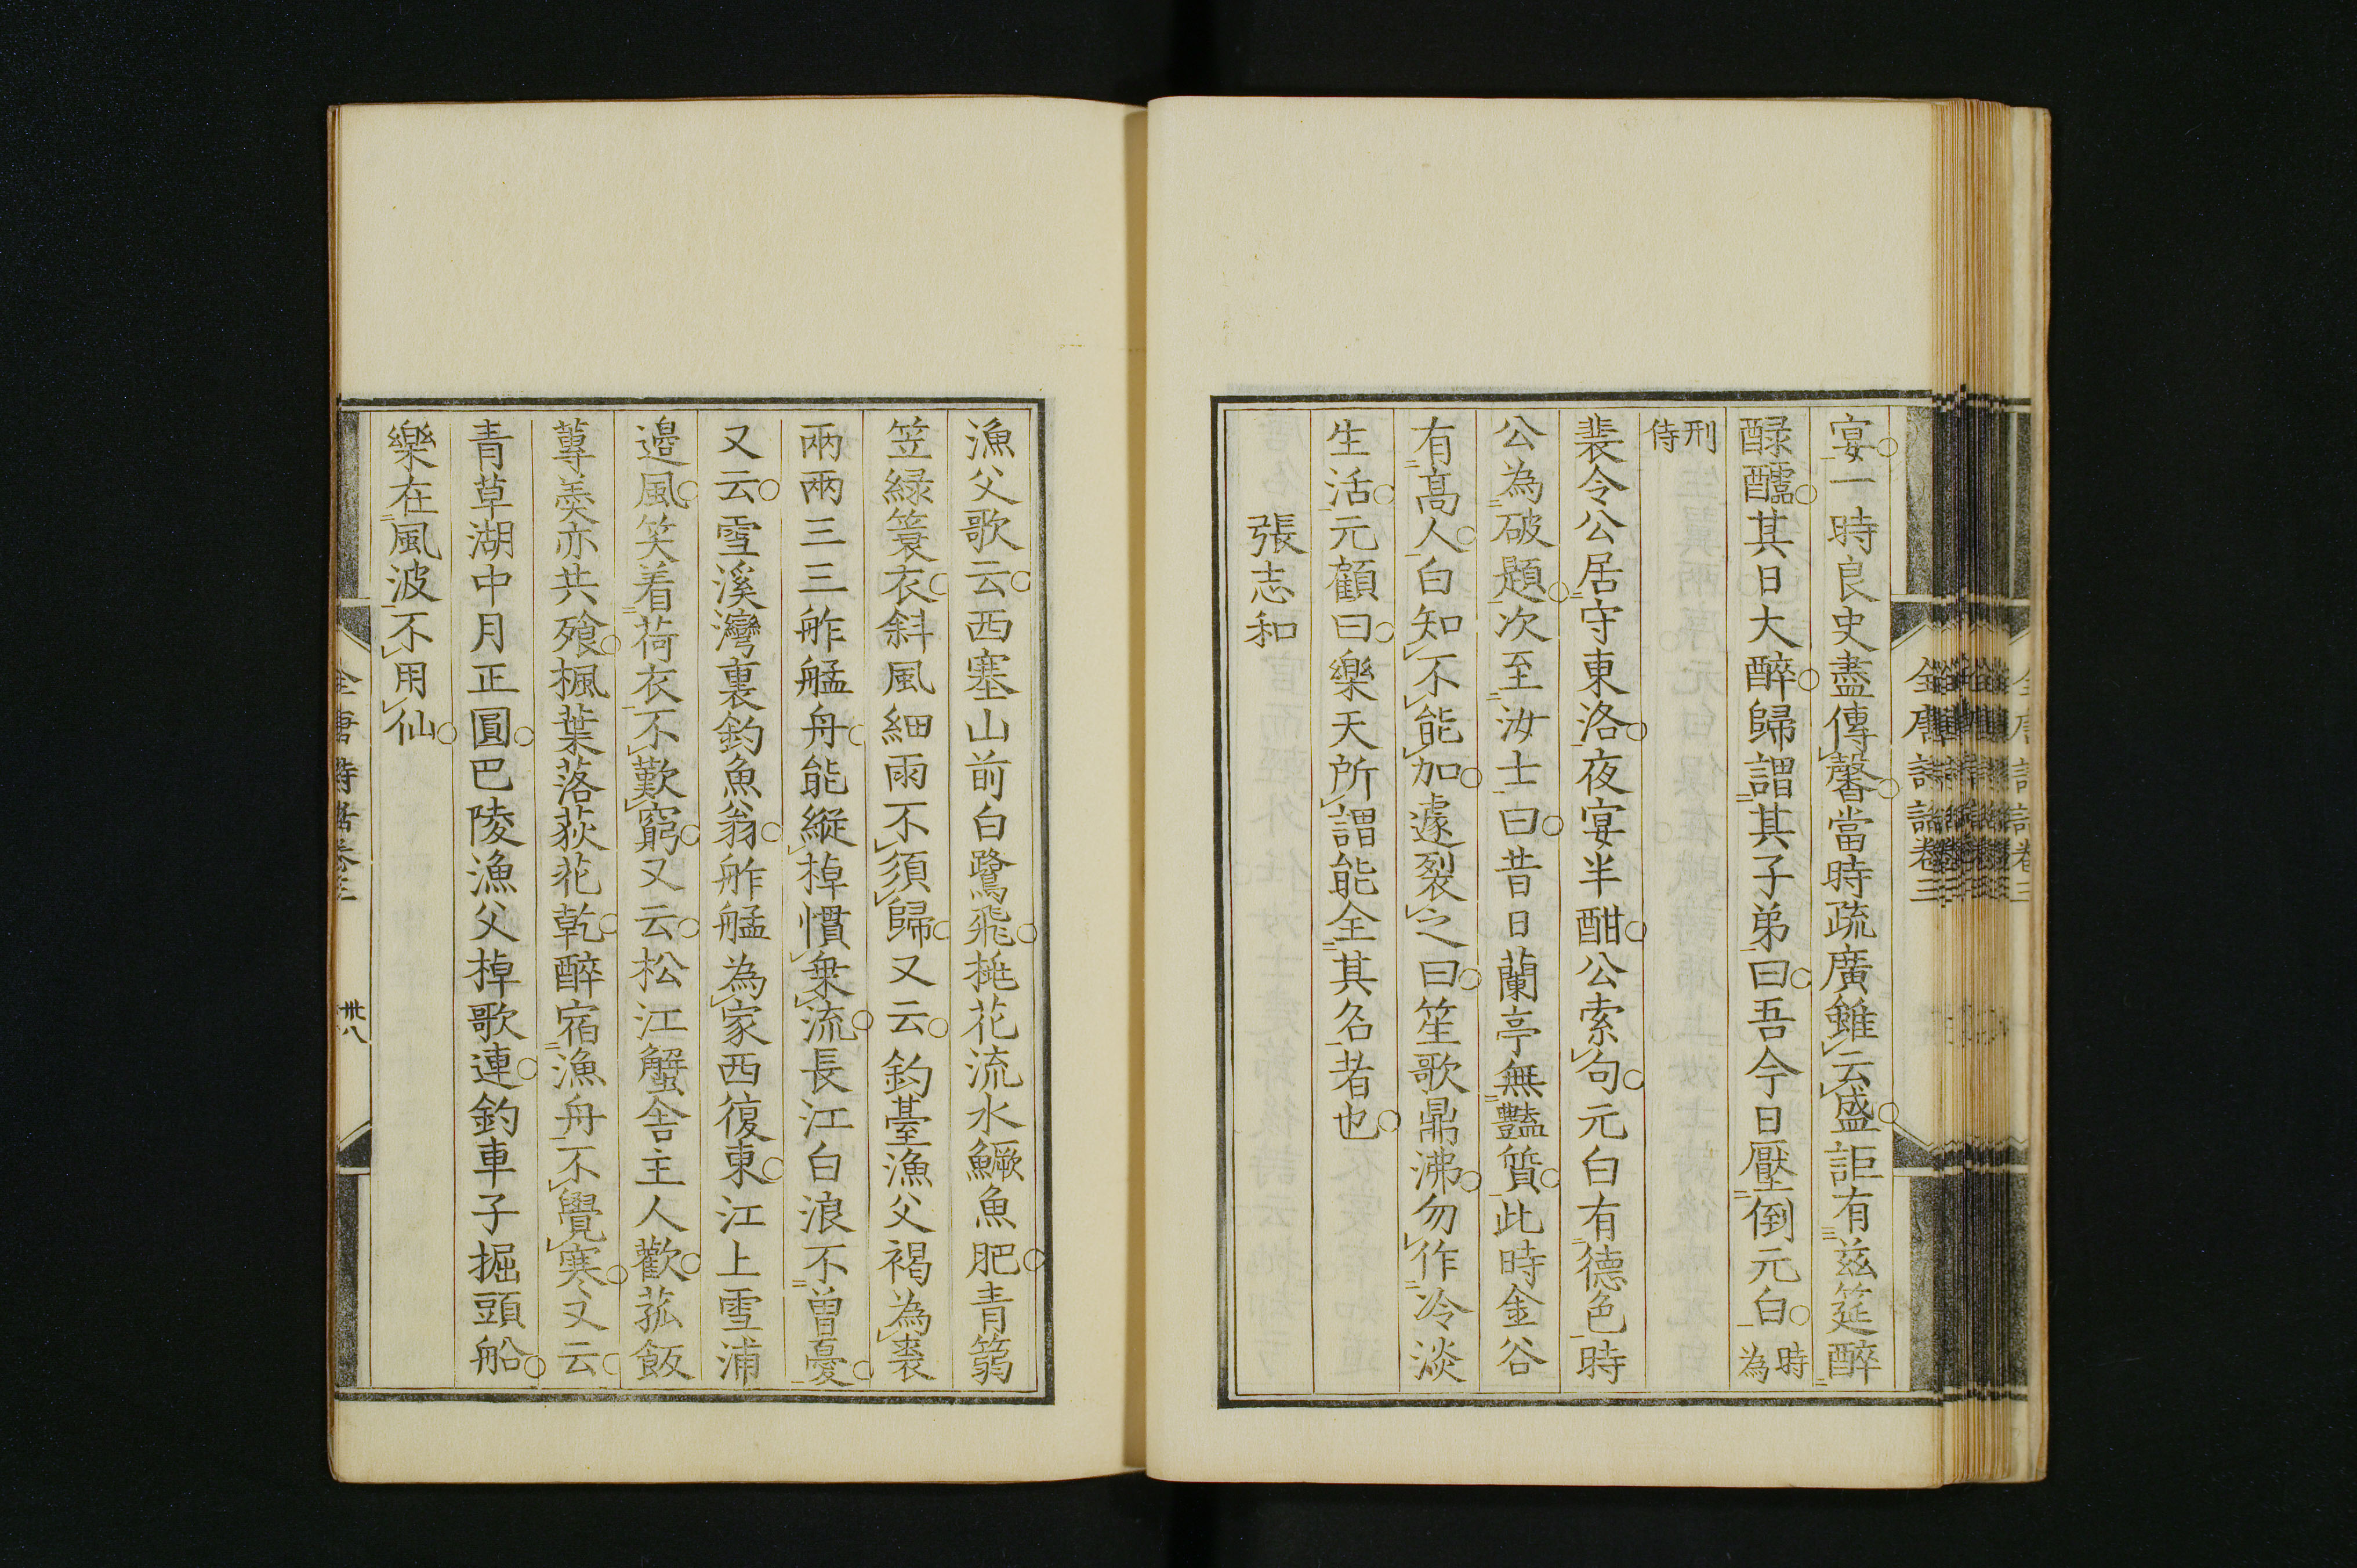 宴一時良史盡傳馨當時疏廣雖云盛詎有兹筵醉
醁醽其日大醉歸謂其子弟曰吾今日壓倒元白時為
刑侍
裴令公居守東洛夜宴半酣公索句元白有德色時
公為破題次至汝士曰昔日蘭亭無豔質此時金谷
有髙人白知不能加遽裂之曰笙歌鼎沸勿作冷淡
生活元顧曰樂天所謂能全其名者也
張志和
漁父歌云西塞山前白鷺飛桃花流水鱖魚肥青篛
笠緑簑衣斜風細雨不須歸又云釣臺漁父褐為裘
兩兩三三舴艋舟能縱棹慣乗流長江白浪不曾憂
又云雪溪灣裏釣魚翁舴艋為家西復東江上雪浦
邉風笑着荷衣不歎窮又云松江蟹舍主人歡菰飯
蓴羹亦共飱楓葉落荻花乾醉宿漁舟不覺寒又云
青草湖中月正圓巴陵漁父棹歌連釣車子掘頭船
樂在風波不用仙
全唐詩話卷三
卅八